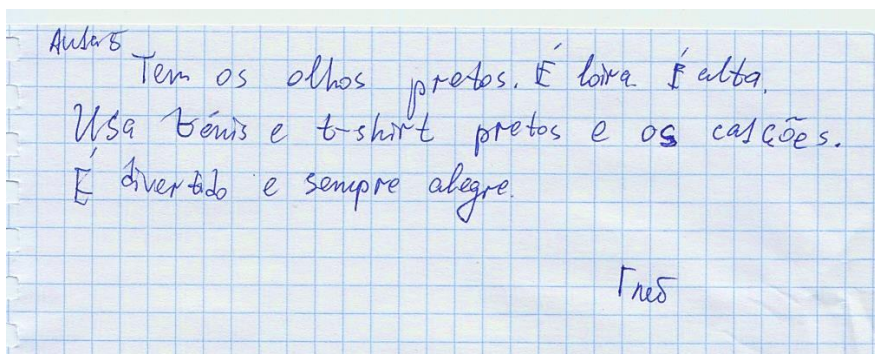 Aula 8
Tem os olhos pretos. É loira É alta.
Usa ténis e t-shirt pretos e os calções.
É divertido e sempre alegre.
Глеб